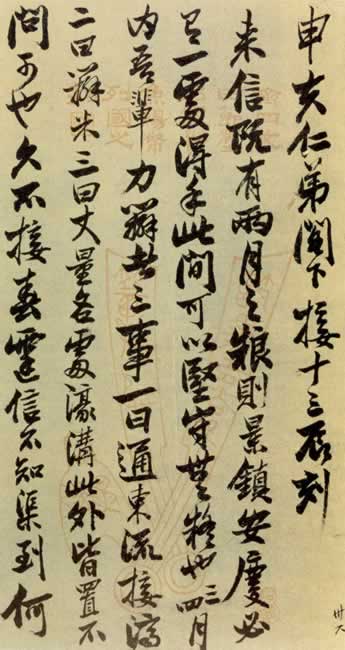 申夫仁弟閣下接十三辰刻
来信既有兩月之粮則景鎮安慶必
有一處得手此間可以堅守無疑也三四月
内吾輩力辦者三事一曰通東流接濟
二曰辦米三曰丈量各處濠溝此外皆置不
問可也久不接春霆信不知渠到何